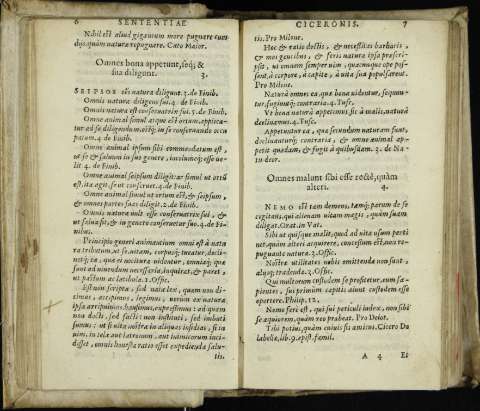 6 SENTENTIAE
Nihil est aliud gigantum more pugnare cum
dijs, quàm naturæ repugnare. Cato Maior.
Omnes bona appetunt, seq; &
sua diligunt. 3.
SEIPSOS oēs natura diligunt. 3. de Finib.
Omnis natura diligens sui. 4. de Finib.
Omnis natura est conseruatrix sui. 5. de Finib.
Omne animal simul atque est ortum, applica-
tur ad se diligendum, atq; in se conseruando occu
patum. 4. de Finib.
Omne animal ipsum sibi commendatum est,
ut se & saluum in suo genere, incolumeq; esse ue-
lit. 4. de Finib.
Omne animal seipsum diligit: ac simul ut ortū
est, ita agit, se ut conseruet. 4. de Finib.
Omne animal simul ut ortum est, & seipsum,
& omnes partes suas diligit. 2. de Finib.
Omnis natura uult esse conseruatrix sui, &
ut salua sit, & in genere conseruetur suo. 4. de Fi-
nibus.
Principio generi animantium omni est à natu
ra tributum, ut se, uitam, corpusq; tueatur, decli-
netq; ea, quæ ei nocitura uideantur, omniaq; quæ
sunt ad uiuendum necessaria, inquirat, & paret,
ut pastum ac latibula. 1. Offic.
Est non scripta, sed nata lex, quam non di-
dimus, accepimus, legimus, uerum ex natura
ipsa arripuimus, hausimus, expressimus: ad quam
non docti, sed facti: non instituti, sed imbuti
sumus: ut si uita nostra in aliquas insidias, si in
uim, in tela aut latronum, aut inimicorum inci-
disset, omnis honesta ratio esset expediendæ salu-
tis.
CICERONIS. 7
tis. Pro Milone.
Hoc & ratio doctis, & necessitas barbaris,
& mos gentibus, & feris natura ipsa præscri-
psit, ut omnem semper uim, quacunque ope pos-
sent, à corpore, à capite, à uita sua propulsarent.
Pro Milone.
Natura omnes ea, quæ bona uidentur, sequun-
tur, fugiuntq; contraria. 4. Tusc.
Ut bona natura appetimus, sic à malis, natura
declinamus. 4. Tusc.
Appetuntur ea, quæ secundum naturam sunt,
declinanturq; contraria, & omne animal ap-
petit quædam, & fugit à quibusdam. 3. de Na-
tu. deor.
Omnes malunt sibi esse rectè, quàm
alteri. 4.
NEMO est tam demens, tamq; parum de se
cogitans, qui alienam uitam magis, quàm suam
diligat. Orat. in Vat.
Sibi ut quisque malit, quod ad uitæ usum perti
net, quàm alteri acquirere, concessum est, non re-
pugnante natura. 3. Offic.
Nostræ utilitates nobis omittendæ non sunt,
alijsq; tradendæ. 3. Offic.
Qui multorum custodem se profitetur, eum sa-
pientes, sui primùm capitis aiunt custodem esse
oportere. Philip. 12.
Nemo ferè est, qui sui periculi index, non sibi
se æquiorem, quàm reo præbeat. Pro Deiot.
Tibi potius, quàm cuiuis sis amicus. Cicero Do
labellæ, lib. 9. epist. famil.
A 4 Et